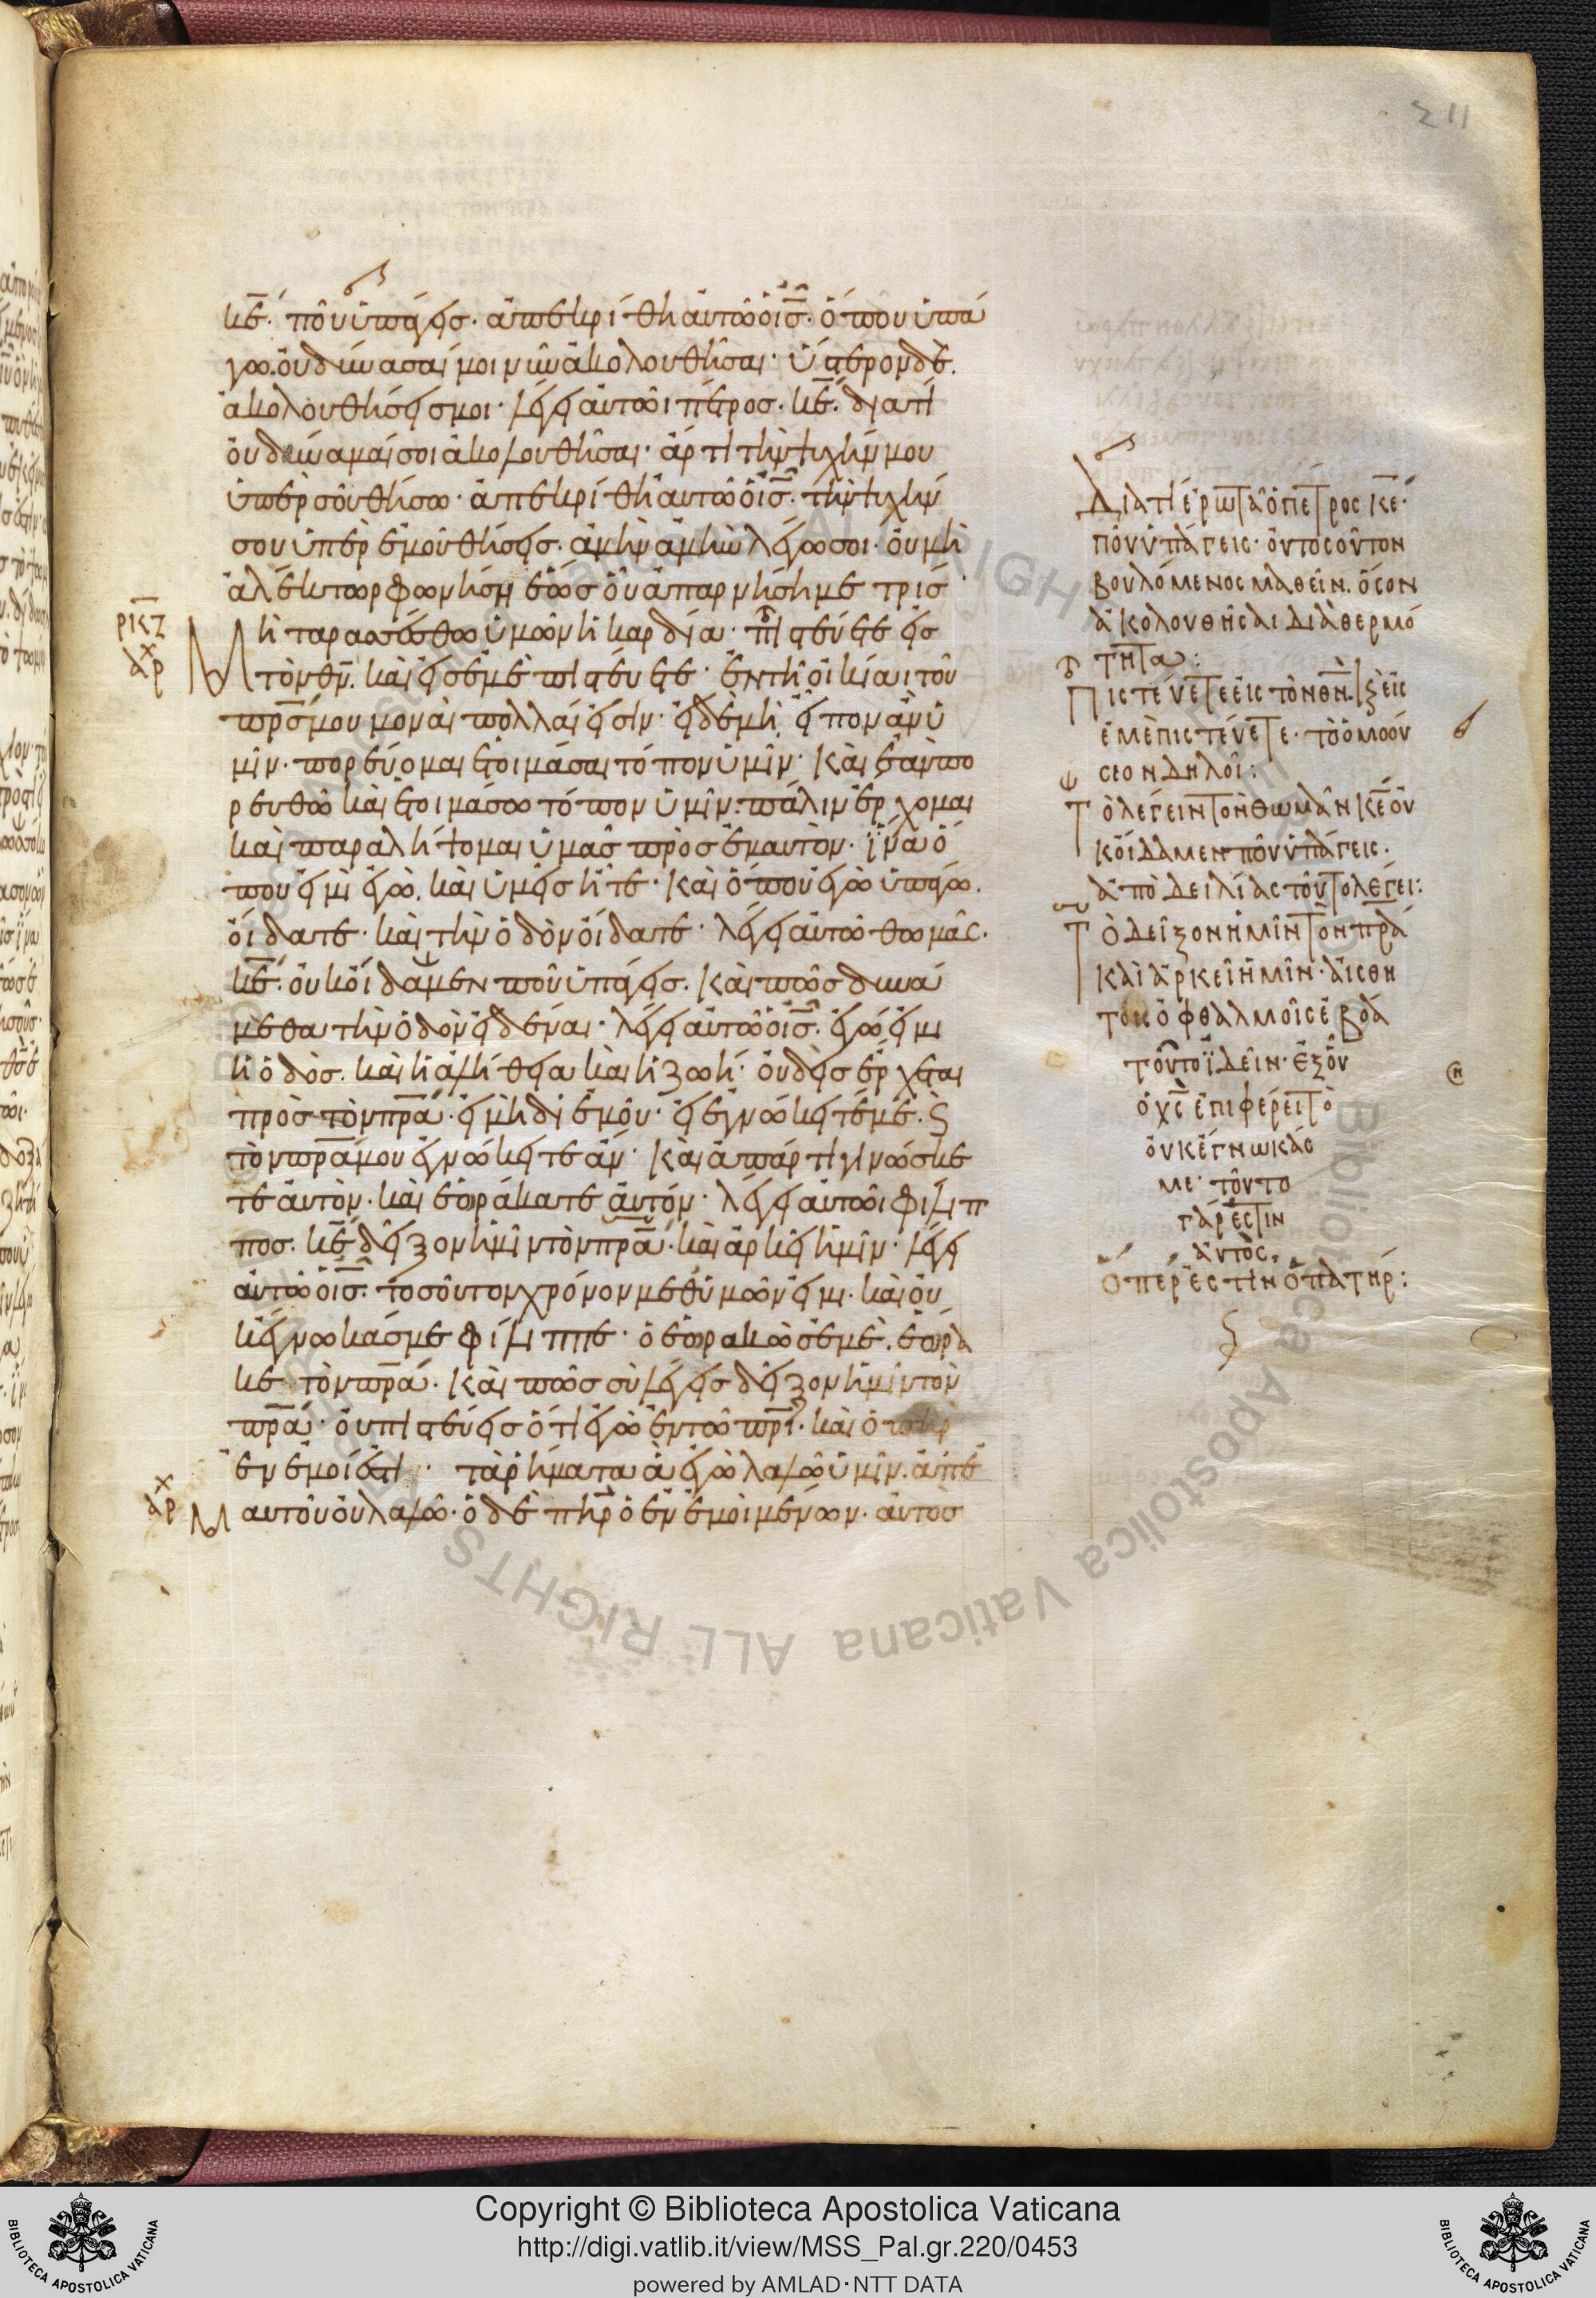 211
κε̅· ποῦ ὑπάγεις· ἀπεκρίθη αὐτῶ ὁ ι̅ς̅· ὅπου ὑπά
γω. οὐ δύνασαί μοι νῦν ἀκολουθῆσαι· ὕστερον δὲ.
ἀκολουθήσεις μοι· λέγει αὐτῶι πέτρος. κε̅· διατί
οὐ δύναμαί σοι ἀκολουθῆσαι· ἄρτι τὴν ψυχήν μου
ὑπὲρ σοῦ θήσω· ἀπεκρίθη αὐτῶ ὁ ι̅ς̅· τὴν ψυχήν
σου ὑπὲρ ἐμοῦ θήσεις. ἀμὴν ἀμὴν λέγω σοι· οὐ μὴ
ἀλέκτωρ φωνήση ἕως οὗ ἀπαρνήση με τρίς
ρκζ
ἀρχ
Μὴ ταρασσέσθω ὑμῶν ἡ καρδία· πιστεύετε εἰς
τὸν θν̅. καὶ εἰς ἐμὲ πιστεύετε· ἐν τῆ οἰκίαι τοῦ
πρ̅ς μου μοναὶ πολλαί εἰσιν· εἰ δὲ μὴ, εἶπον ἂν ὑ
μῖν· πορεύομαι ἑτοιμάσαι τόπον ὑμῖν· Καὶ ἐὰν πο
ρευθῶ καὶ ἑτοιμάσω τόπον ὑμῖν. πάλιν ἔρχομαι
καὶ παραλήψομαι ὑμᾶς πρὸς ἐμαυτόν· ἵνα ὅ
που εἰμὶ ἐγὼ. καὶ ὑμεῖς ἦτε· Καὶ ὅπου ἐγὼ ὑπάγω.
οἴδατε· καὶ τὴν ὁδὸν οἴδατε· λέγει αὐτῶ θωμᾶς·
κε̅· οὐκ οἴδαμεν ποῦ ὑπάγεις. Καὶ πῶς δυνά
μεθα τὴν ὁδὸν εἰδέναι· λέγει αὐτῶ ὁ ι̅ς̅· ἐγώ εἰμι
ἡ ὁδὸς. καὶ ἡ ἀλήθεια καὶ ἡ ζωή· οὐδεὶς ἔρχεται
πρὸς τὸν πρ̅α· εἰ μὴ δι ἐμοῦ· εἰ ἐγνώκειτέ με. ϗ
τὸν πρ̅α μου ἐγνώκειτε ἄν· Καὶ ἀπάρτι γινώσκε
τε αὐτὸν. καὶ ἑωράκατε αὐτόν· λέγει αὐτῶι φίλιπ
πος. κε̅ δεῖξον ἡμῖν τὸν πρ̅α· καὶ ἀρκεῖ ἡμῖν· λέγει
αὐτῶ ὁ ι̅ς̅· τοσοῦτον χρόνον μεθ ὑμῶν εἰμι. καὶ οὐ
κ ἔγνωκάς με φίλιππε· ὁ ἑωρακὼς ἐμὲ. ἑώρα
κε τὸν πρ̅α· Καὶ πῶς σὺ λέγεις δεῖξον ἡμῖν τὸν
πρ̅α· οὐ πιστεύεις ὅτι ἐγὼ ἐν τῶ πρ̅ι· καὶ ὁ πηρ̅
ἐν ἐμοί ἐστι· τὰ ῥήματα ἃ ἐγὼ λαλῶ ὑμῖν. ἀπ ἐ
ἀρχ
Μαυτοῦ οὐ λαλῶ· ὁ δὲ πηρ̅ ὁ ἐν ἐμοὶ μένων. αὐτὸς
Διατί ἐρωτᾶ ὁ πέτρος κε̅·
ποῦ ὑπάγεις· οὐ τοσοῦτον
βουλόμενος μαθεῖν. ὅσον
ἀκολουθῆσαι διὰ θερμό
τητα:
Πιστεύετε εἰς τὸν θν̅. ϗ εἰς
ἐμὲ πιστεύετε· τὸ ὁμοού
σιον δηλοῖ:
Τὸ λέγειν τὸν θωμᾶν κε̅ οὐ
κ οἴδαμεν ποῦ ὑπάγεις.
ἀπὸ δειλίας τοῦτο λέγει:
Τὸ δεῖξον ἡμῖν τὸν πρ̅α
καὶ ἀρκεῖ ἡμῖν· αἰσθη
τοῖς ὀφθαλμοῖς ἐβού
τοῦτο ἰδεῖν· ἐξ οὗ
ὁ χς̅ ἐπιφέρει τὸ
οὐκ ἔγνωκάς
με· τοῦτο
γάρ ἐστιν
αὐτὸς,
ὅπέρ ἐστιν ὁ πατήρ:
Copyright © Biblioteca Apostolica Vaticana
http://digi.vatlib.it/view/MSS_Pal.gr.220/0453
powered by AMLAD·NTT DATA
BIBLIOTECA APOSTOLICA VATICANA
BIBLIOTECA APOSTOLICA VATICANA